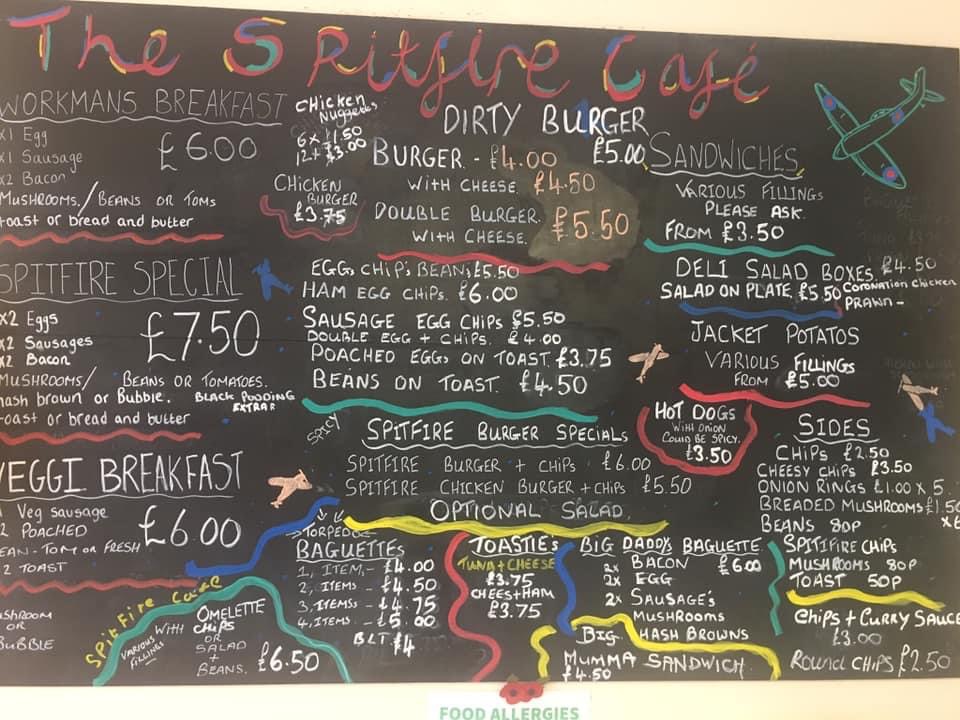 The Spitfire Café
WORKMANS BREAKFAST
x1 Egg
x1 Sausage
x2 Bacon
£6.00
MUSHROOMS/BEANS OR TOMS
toast or bread and butter
SPITFIRE SPECIAL
x2 Eggs
x2 Sausages
x2 Bacon
£7.50
MUSHROOMS/ BEANS OR TOMATOES.
hash brown or Bubble. BLACK POODING
EXTRAR
toast or bread and butter
VEGGI BREAKFAST
1 Veg Sausage
2 POACHED
£6.00
BEAN-TOM OR FRESH
2 TOAST
MUSHROOM
OR
BUBBLE
Spitfire Cafe
OMELETTE
WITH CHIPS
VARIOUS FILLINGS
OR
SALAD
+
BEANS. £6.50
CHICKEN
Nuggetts
6 x £1.50
12 x £3.00
CHICKEN
BURGER
£3.75
DIRTY BURGER
£5.00
BURGER - £4.00
WITH CHEESE. £4.50
DOUBLE BURGER.
WITH CHEESE. £5.50
EGGS CHIP'S BEANS £5.50
HAM EGG CHIPS. £6.00
SAUSAGE EGG CHIPS £5.50
DOUBLE EGG + CHIPS. £4.00
POACHED EGGS ON TOAST £3.75
BEANS ON TOAST. £4.50
SPICY
SPITFIRE BURGER SPECIALS
SPITFIRE BURGER + CHIPS £6.00
SPITFIRE CHICKEN BURGER + CHIPS £5.50
OPTIONAL SALAD.
TORPEDOE
BAGUETTES
1, ITEM, - £4.00
2, ITEMS - £4.50
3, ITEMSS - £4.75
4, ITEMS - £5.00
BLT £4
TOASTIE'S
TUNA + CHEESE
£3.75
CHEES+HAM
£3.75
BIG DADDY'S BAGUETTE
2x BACON £6.00
2x EGG
2x SAUSAGE'S
MUSHROOMS
HASH BROWNS
BIG
MUMMA SANDWICH
£4.50
SANDWICHES
VARIOUS FILLINGS
PLEASE ASK.
FROM £3.50
DELI SALAD BOXES. £4.50
SALAD ON PLATE. £5.50 Coronation Chicken
PRAWN -
JACKET POTATOS
VARIOUS FILLINGS
FROM £5.00
HOT DOGS
WITH ONION
COULD BE SPICY.
£3.50
SIDES
CHIPS £2.50
CHEESY CHIPS £3.50
ONION RINGS £1.00 X 5.
BREADED MUSHROOMS £1.50
x6
BEANS 80P
SPITIFIRE CHIPS
MUSHROOMS 80P
TOAST 50P
CHIPS + CURRY SAUCE
£3.00
ROUND CHIPS £2.50
FOOD ALLERGIES